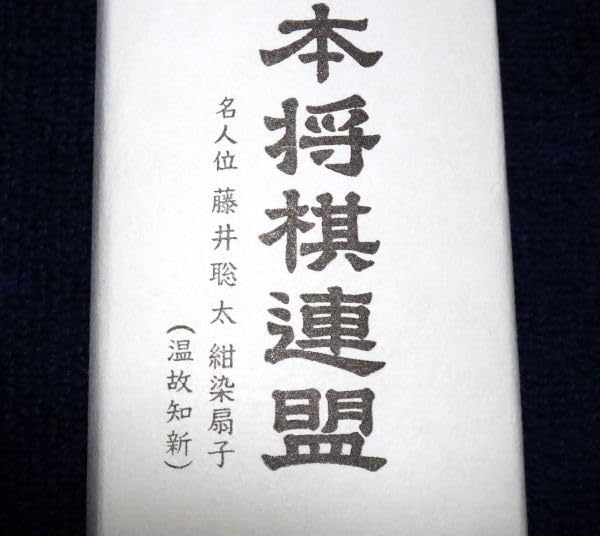 本将棋連盟
名人位 藤井聡太 紺染扇子
(温故知新)